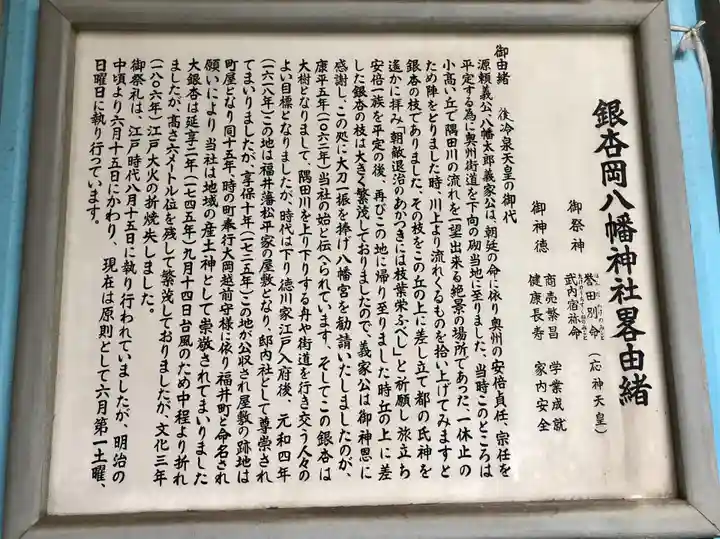 銀杏岡八幡神社畧由緒
御祭神 誉田別命 (応神天皇)
武内宿祢命
御神徳 商売繁昌 学業成就
健康長寿 家内安全
御由緒 後冷泉天皇の御代
源頼義公、八幡太郎義家公は、朝廷の命に依り奥州の安倍貞任、宗任を
平定する為に奥州街道を下向の砌当地に至りました、当時このところは
小高い丘で隅田川の流れを一望出来る絶景の場所であった、一休止の
ため陣をとりました時、川上より流れくるものを拾い上げてみますと
銀杏の枝でありました、その枝をこの丘の上に差し立て都の氏神を
遥かに拝み「朝敵退治のあかつきには枝葉栄ふべし」と祈願し旅立ち
安倍一族を平定の後、再びこの地に帰り至りました時丘の上に差
した銀杏の枝は大きく繁茂しておりましたので、義家公は御神恩に
感謝し、この処に大刀一振を捧げ八幡宮を勧請いたしましたのが、
康平五年(一〇六二年)当社の始と伝へられています、そしてこの銀杏は
大樹となりまして、隅田川を上り下りする舟や街道を行き交う人々の
よい目標となりましたが、時代は下り徳川家江戸入府後、元和四年
(一六一八年)この地は福井藩松平家の屋敷となり、邸内社として尊崇され
てまいりましたが、享保十年(一七二五年)この地が公収され屋敷の跡地は
町屋となり同十五年、時の町奉行大岡越前守様に依り福井町と命名され
願いにより当社は地域の産土神として崇敬されてまいりました
大銀杏は延享二年(一七四五年)九月十四日台風のため中程より折れ
ましたが、高さ六メートル位を残して繁茂しておりましたが、文化三年
(一八〇六年)江戸大火の折焼失しました。
御祭礼は、江戸時代八月十五日に執り行われていましたが、明治の
中頃より六月十五日にかわり、現在は原則として六月第一土曜、
日曜日に執り行っています。